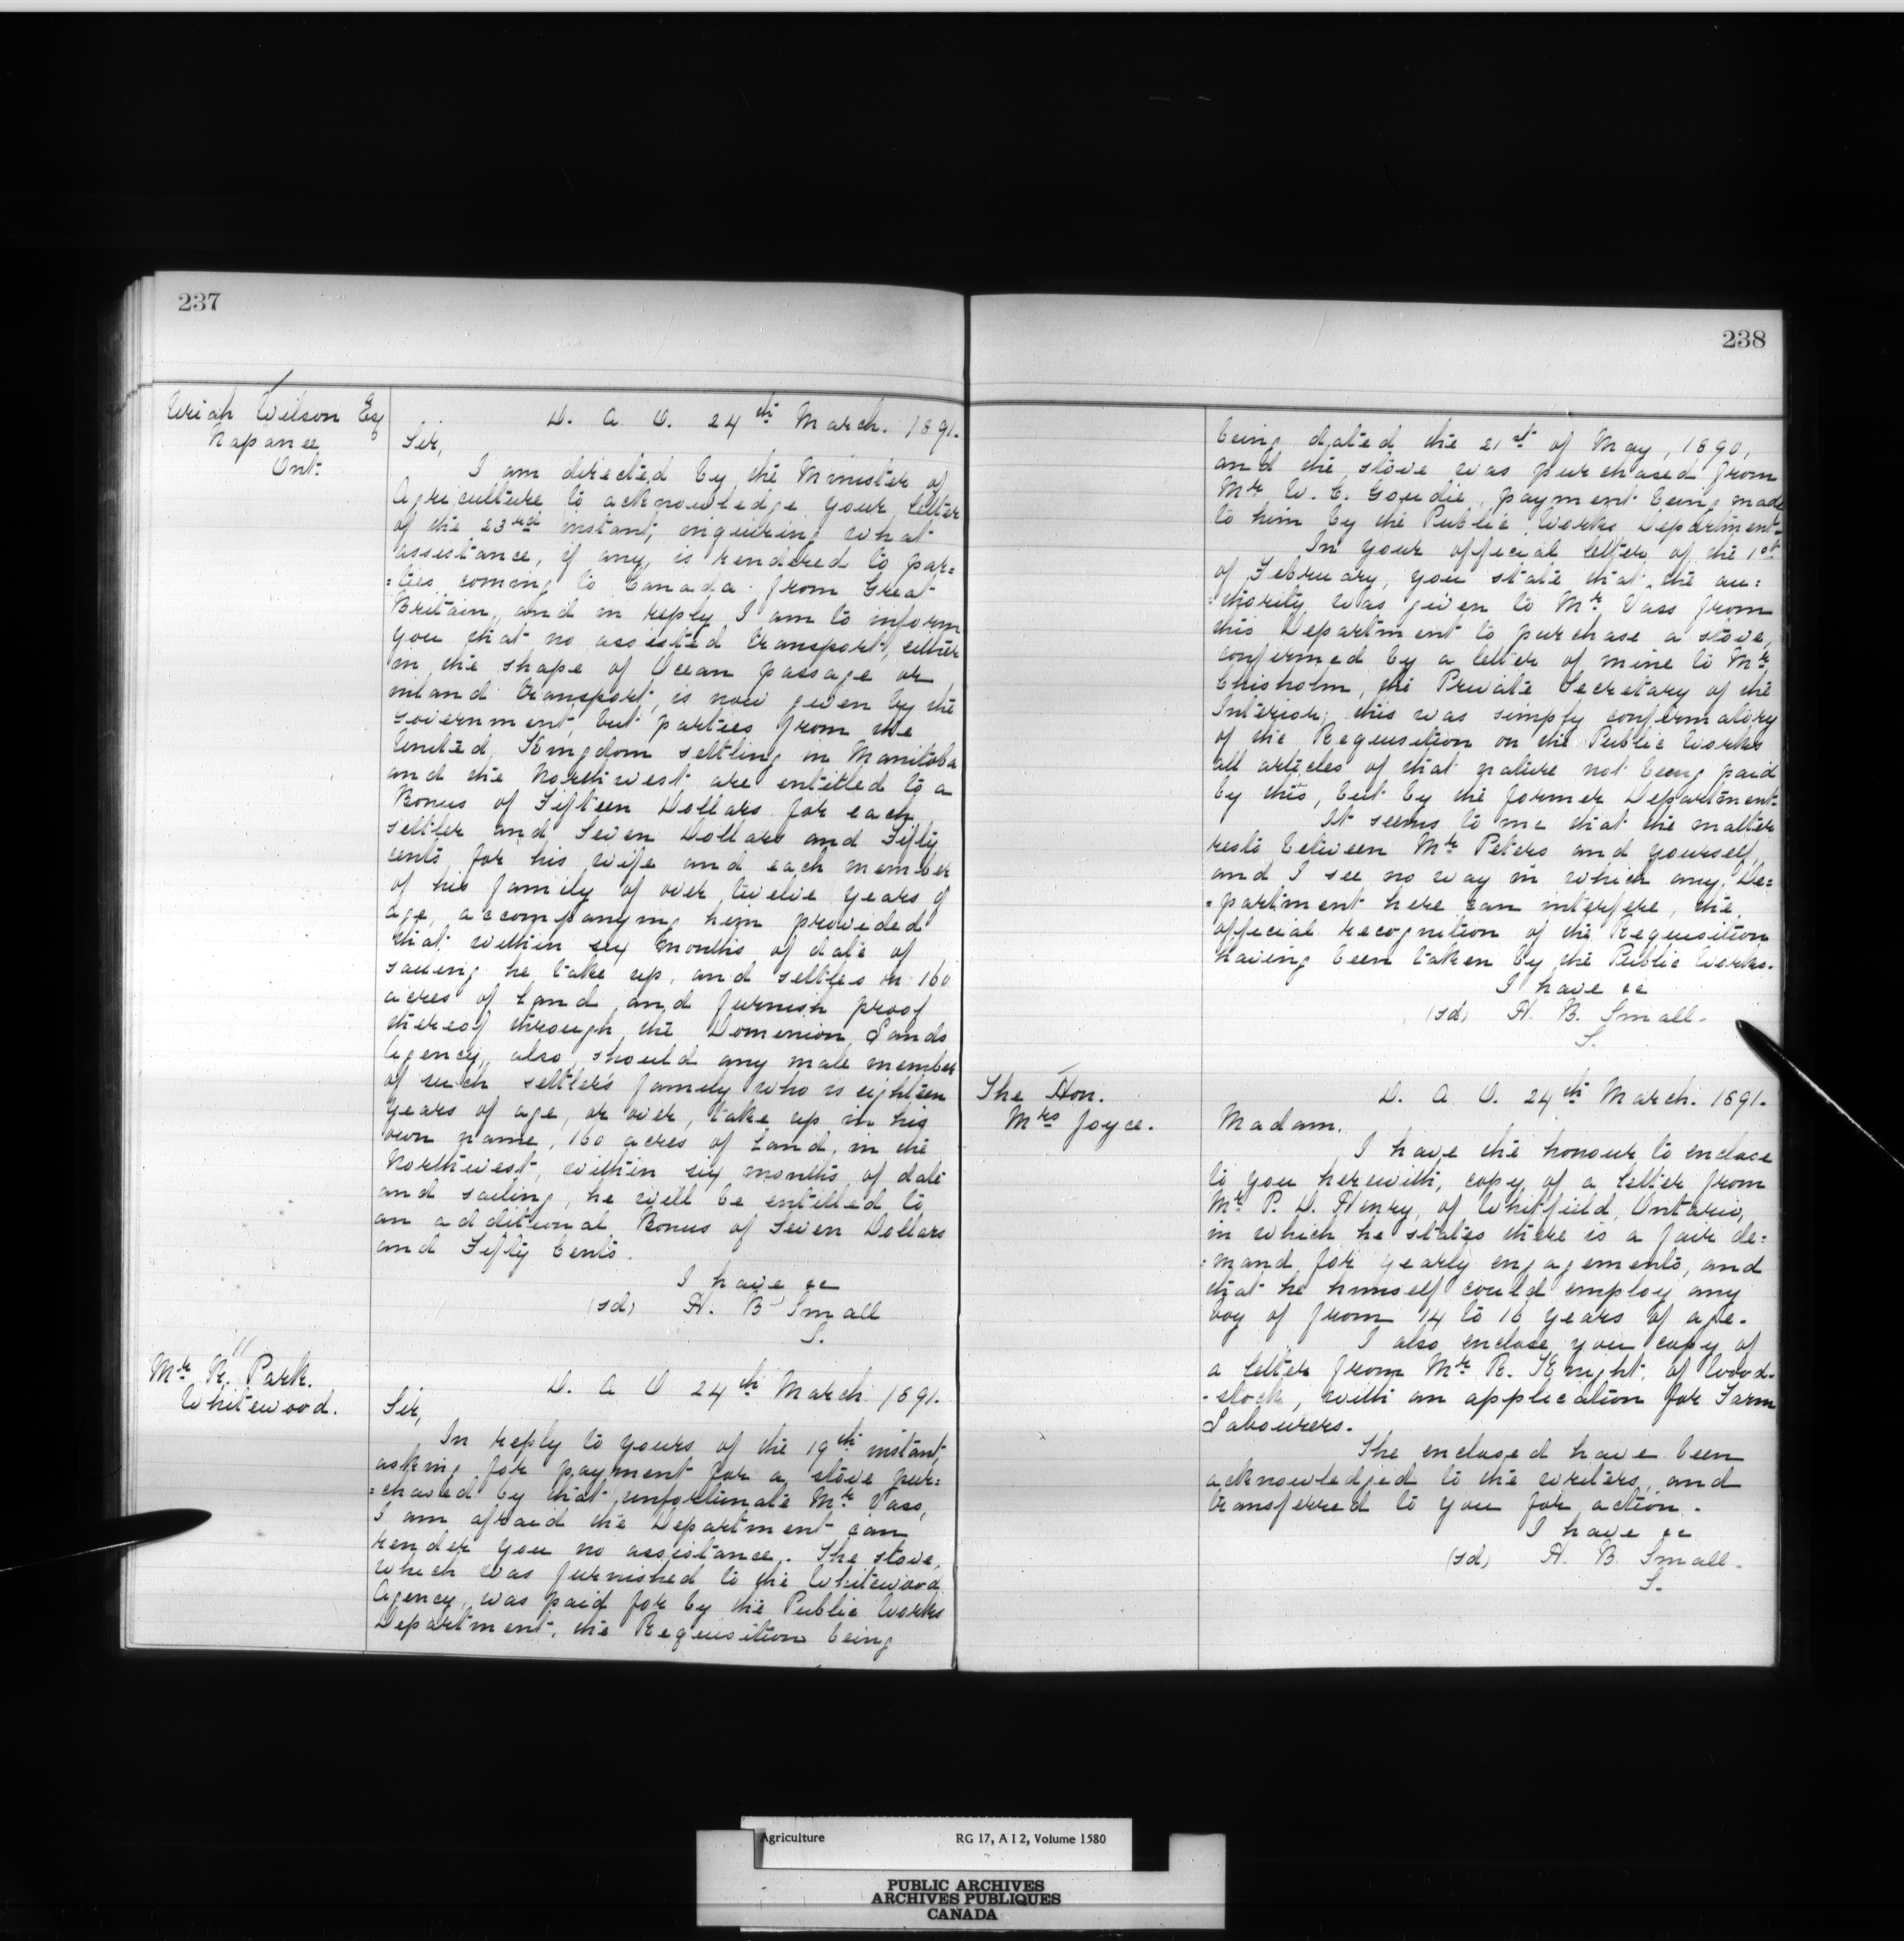 237
Uriah Wilson Esq
Napanee
Ont.
D. A. O. 24th March. 1891.
Sir,
I am directed by the Minister of
Agriculture to acknowledge your letter
of the 23rd instant, inquiring what
assistance, if any, is rendered to par=
=ties coming to Canada from Great
Britain, and in reply I am to inform
you that no assisted transport, either
in the shape of Ocean passage or
inland transport, is now given by the
Government, but parties from the
United Kingdom settling in Manitoba
and the Northwest are entitled to a
Bonus of Fifteen Dollars for each
settler and Seven Dollars and Fifty
cents for his wife and each member
of his family of over twelve years of
age, accompanying him provided
that within six months of date of
sailing he take up, and settles on 160
acres of Land and furnish proof
thereof through the Dominion Lands
Agency, also should any male member
of such settler's family who is eighteen
years of age, or over, take up in his
own name, 160 acres of Land, in the
Northwest, within six months of date
and sailing, he will be entitled to
an additional Bonus of Seven Dollars
and Fifty Cents.
I have &c
(sd) H. B. Small
S.
Mr R. Park.
Whitewood.
D. A O 24th March 1891.
Sir,
In reply to yours of the 19th instant,
asking for payment for a stove pur=
=chased by that unfortunate Mr Vass,
I am afraid the Department can
render you no assistance. The stove,
which was furnished to the Whitewood
Agency, was paid for by the Public Works
Department, the Requisition being
238
being dated the 21st of May, 1890,
and the stove was purchased from
Mr W. C. Goudie, payment being made
to him by the Public Works Department.
In your official letter of the 1st
of February, you state that the au=
=thority was given to Mr Vass from
this Department to purchase a stove,
confirmed by a letter of mine to Mr
Chisholm, the Private Secretary of the
Interior; this was simply confirmatory
of the Requisition on the Public Works
all articles of that nature not being paid
by this, but by the former Department.
It seems to me that the matter
rests between Mr Peters and yourself,
and I see no way in which any De=
=partment here can interfere, the
official recognition of the Requisition
having been taken by the Public Works.
I have &c
(sd) H. B. Small.
S.
The Hon.
Mrs Joyce.
D. A. O. 24th March. 1891.
Madam.
I have the honour to enclose
to you herewith, copy of a letter from
Mr P. D. Henry, of Whitfield, Ontario,
in which he states there is a fair de=
=mand for yearly engagements, and
that he himself could employ any
boy of from 14 to 16 years of age.
I also enclose you copy of
a letter from Mr R. Knight, of Wood-
-stock, with an application for Farm
Labourers.
The enclosed have been
acknowledged to the writers, and
transferred to you for action.
I have &c
(sd) H. B. Small.
S.
Agriculture RG 17, A I 2, Volume 1580
PUBLIC ARCHIVES
ARCHIVES PUBLIQUES
CANADA